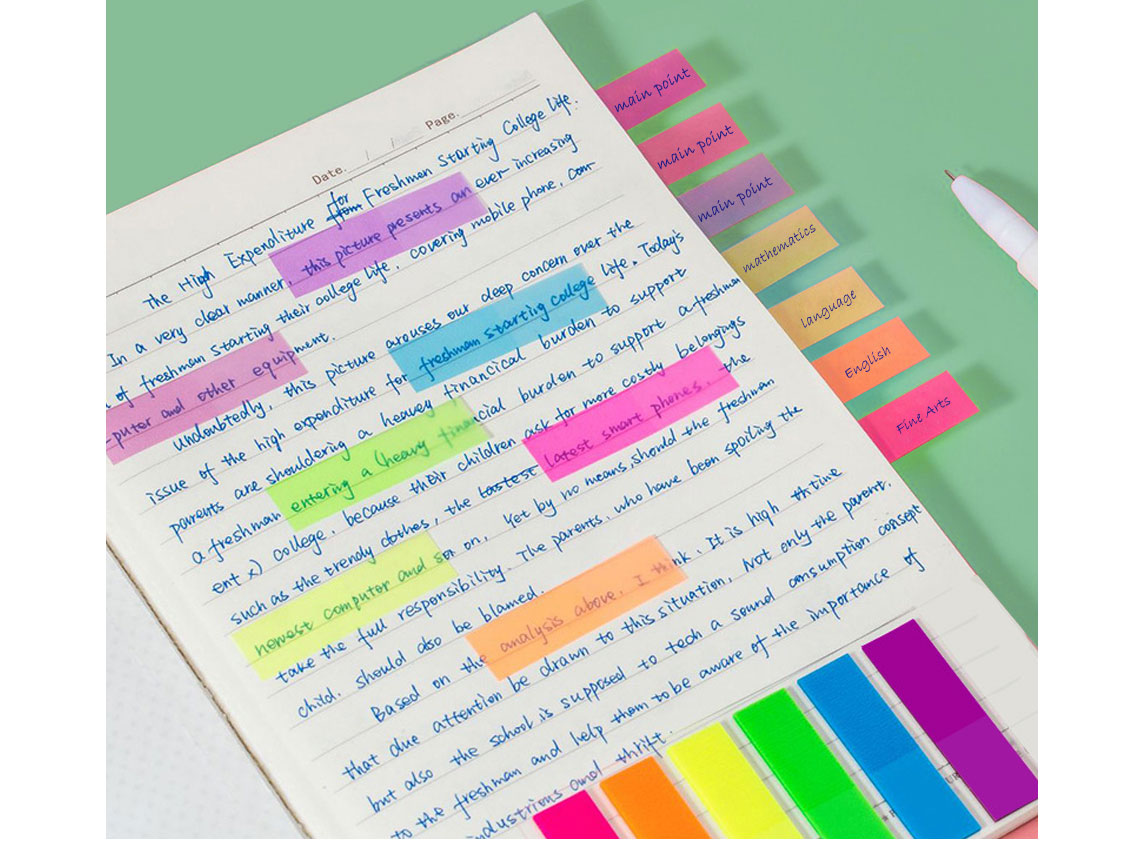 Date. / / Page.
The High Expenditure for from Freshmen Starting College Life.
In a very clear manner, this picture presents an ever increasing
of freshman starting their college life, covering mobile phone, com-
-puter and other equipment.
Undoubtedly, this picture arouses our deep concern over the
issue of the high expenditure for freshman starting college life. Today's
parents are shouldering a heavy financical burden to support
a freshman entering a (heavy financial burden to support a freshman
ent x) college, because their children ask for more costly belongings
such as the trendy clothes, the lastest latest smart phones, the
newest computer and so on, Yet by no means, should the freshman
take the full responsibility. The parents, who have been spoiling the
child, should also be blamed.
Based on the analysis above, I think. It is high thtime
that due attention be drawn to this situation, Not only the parent,
but also the school is supposed to tech a sound consumption consept
to the freshman and help them to be aware of the importance of
industrions and thrift.
main point
main point
main point
mathematics
language
English
Fine Arts